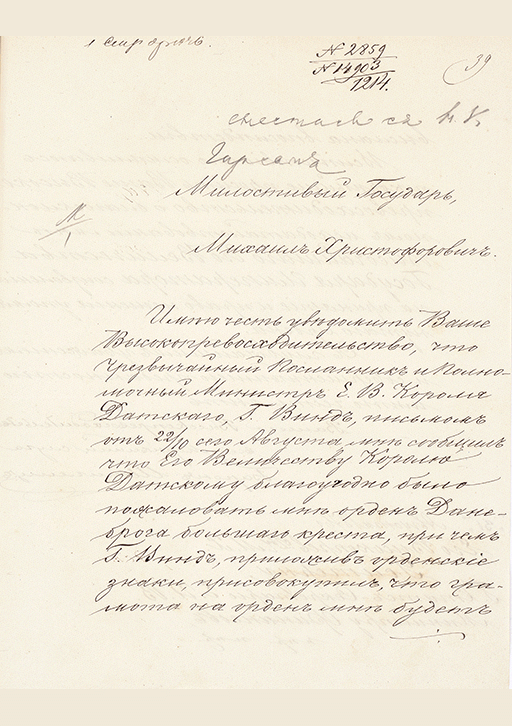 N 2859
N 14903
1214.
39
Милостивый Государь,
Михаилъ Христофоровичъ.
Имѣю честь увѣдомить Ваше
Высокопревосходительство, что
Чрезвычайный Посланникъ и Полно-
мочный Министръ Е. В. Короля
Датскаго, Г. Виндъ, письмомъ
отъ 22/10 сего Августа, мнѣ сообщилъ
что Его Величеству Королю
Датскому благоугодно было
пожаловать мнѣ орденъ Дане-
брога большаго креста, при чемъ
Г. Виндъ, приложивъ орденскіе
знаки, присовокупилъ, что гра-
мота на орденъ мнѣ будетъ